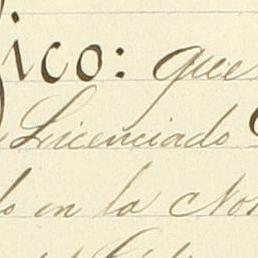 ico: que
Licenciado
o en la No